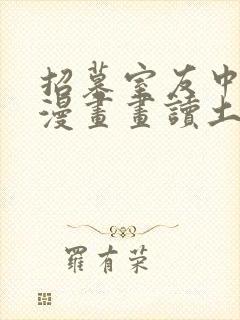 招募室友中
漫畫畫讀土
羅有荣